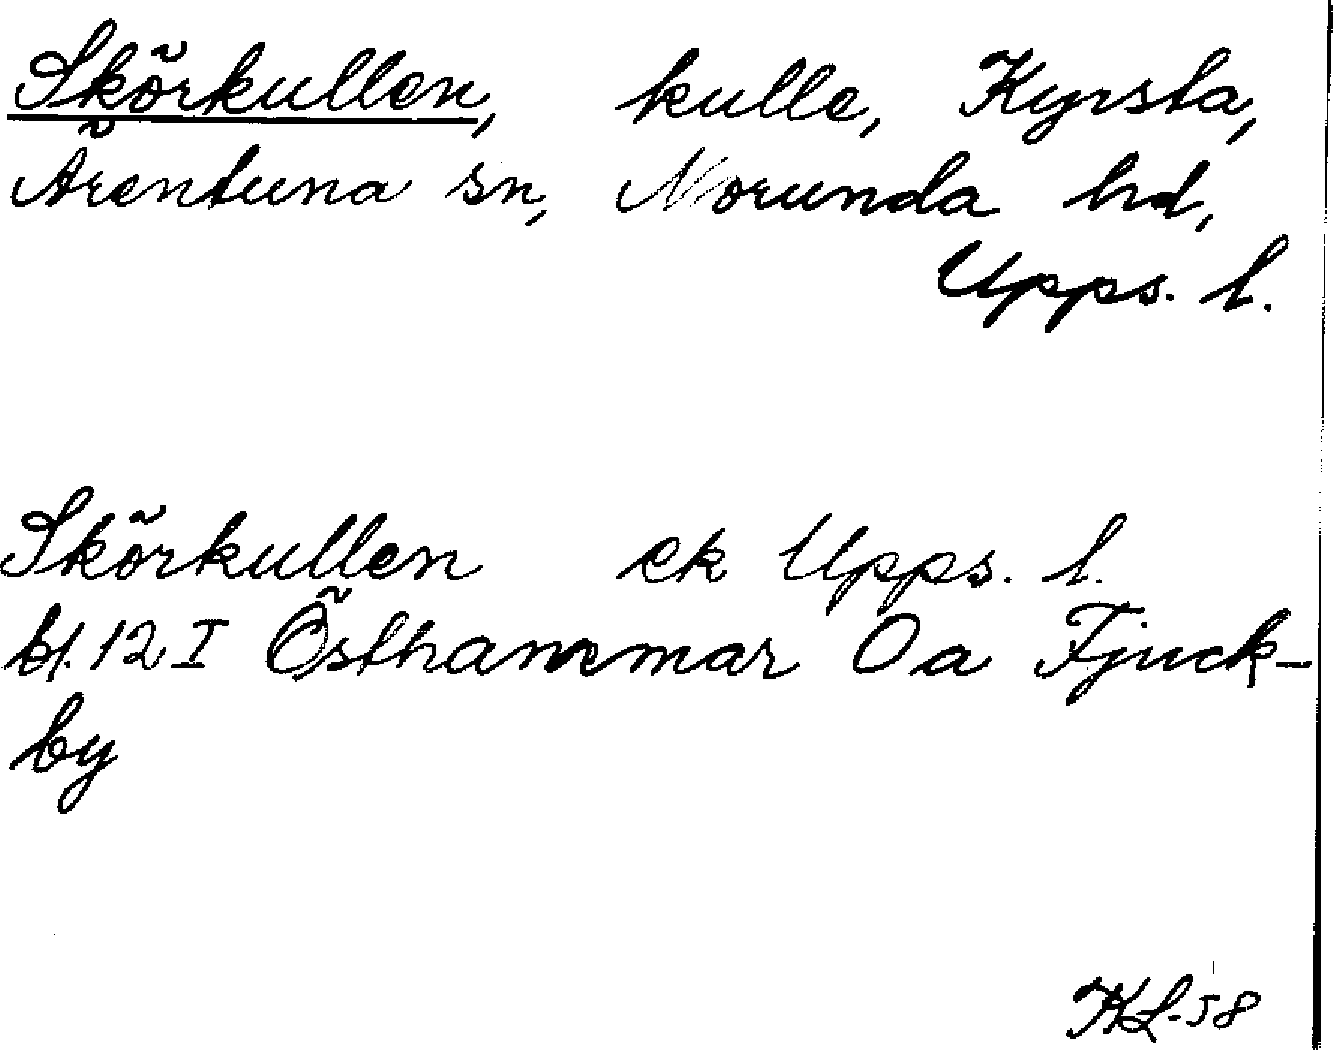 Skörkullen, kulle, Kyrsta,
Ärentuna sn, Norunda hd,
Upps. l.
Skörkullen ek Upps. l.
bl. 12 I Östhammar Oa Fjuck-
by
KL-58